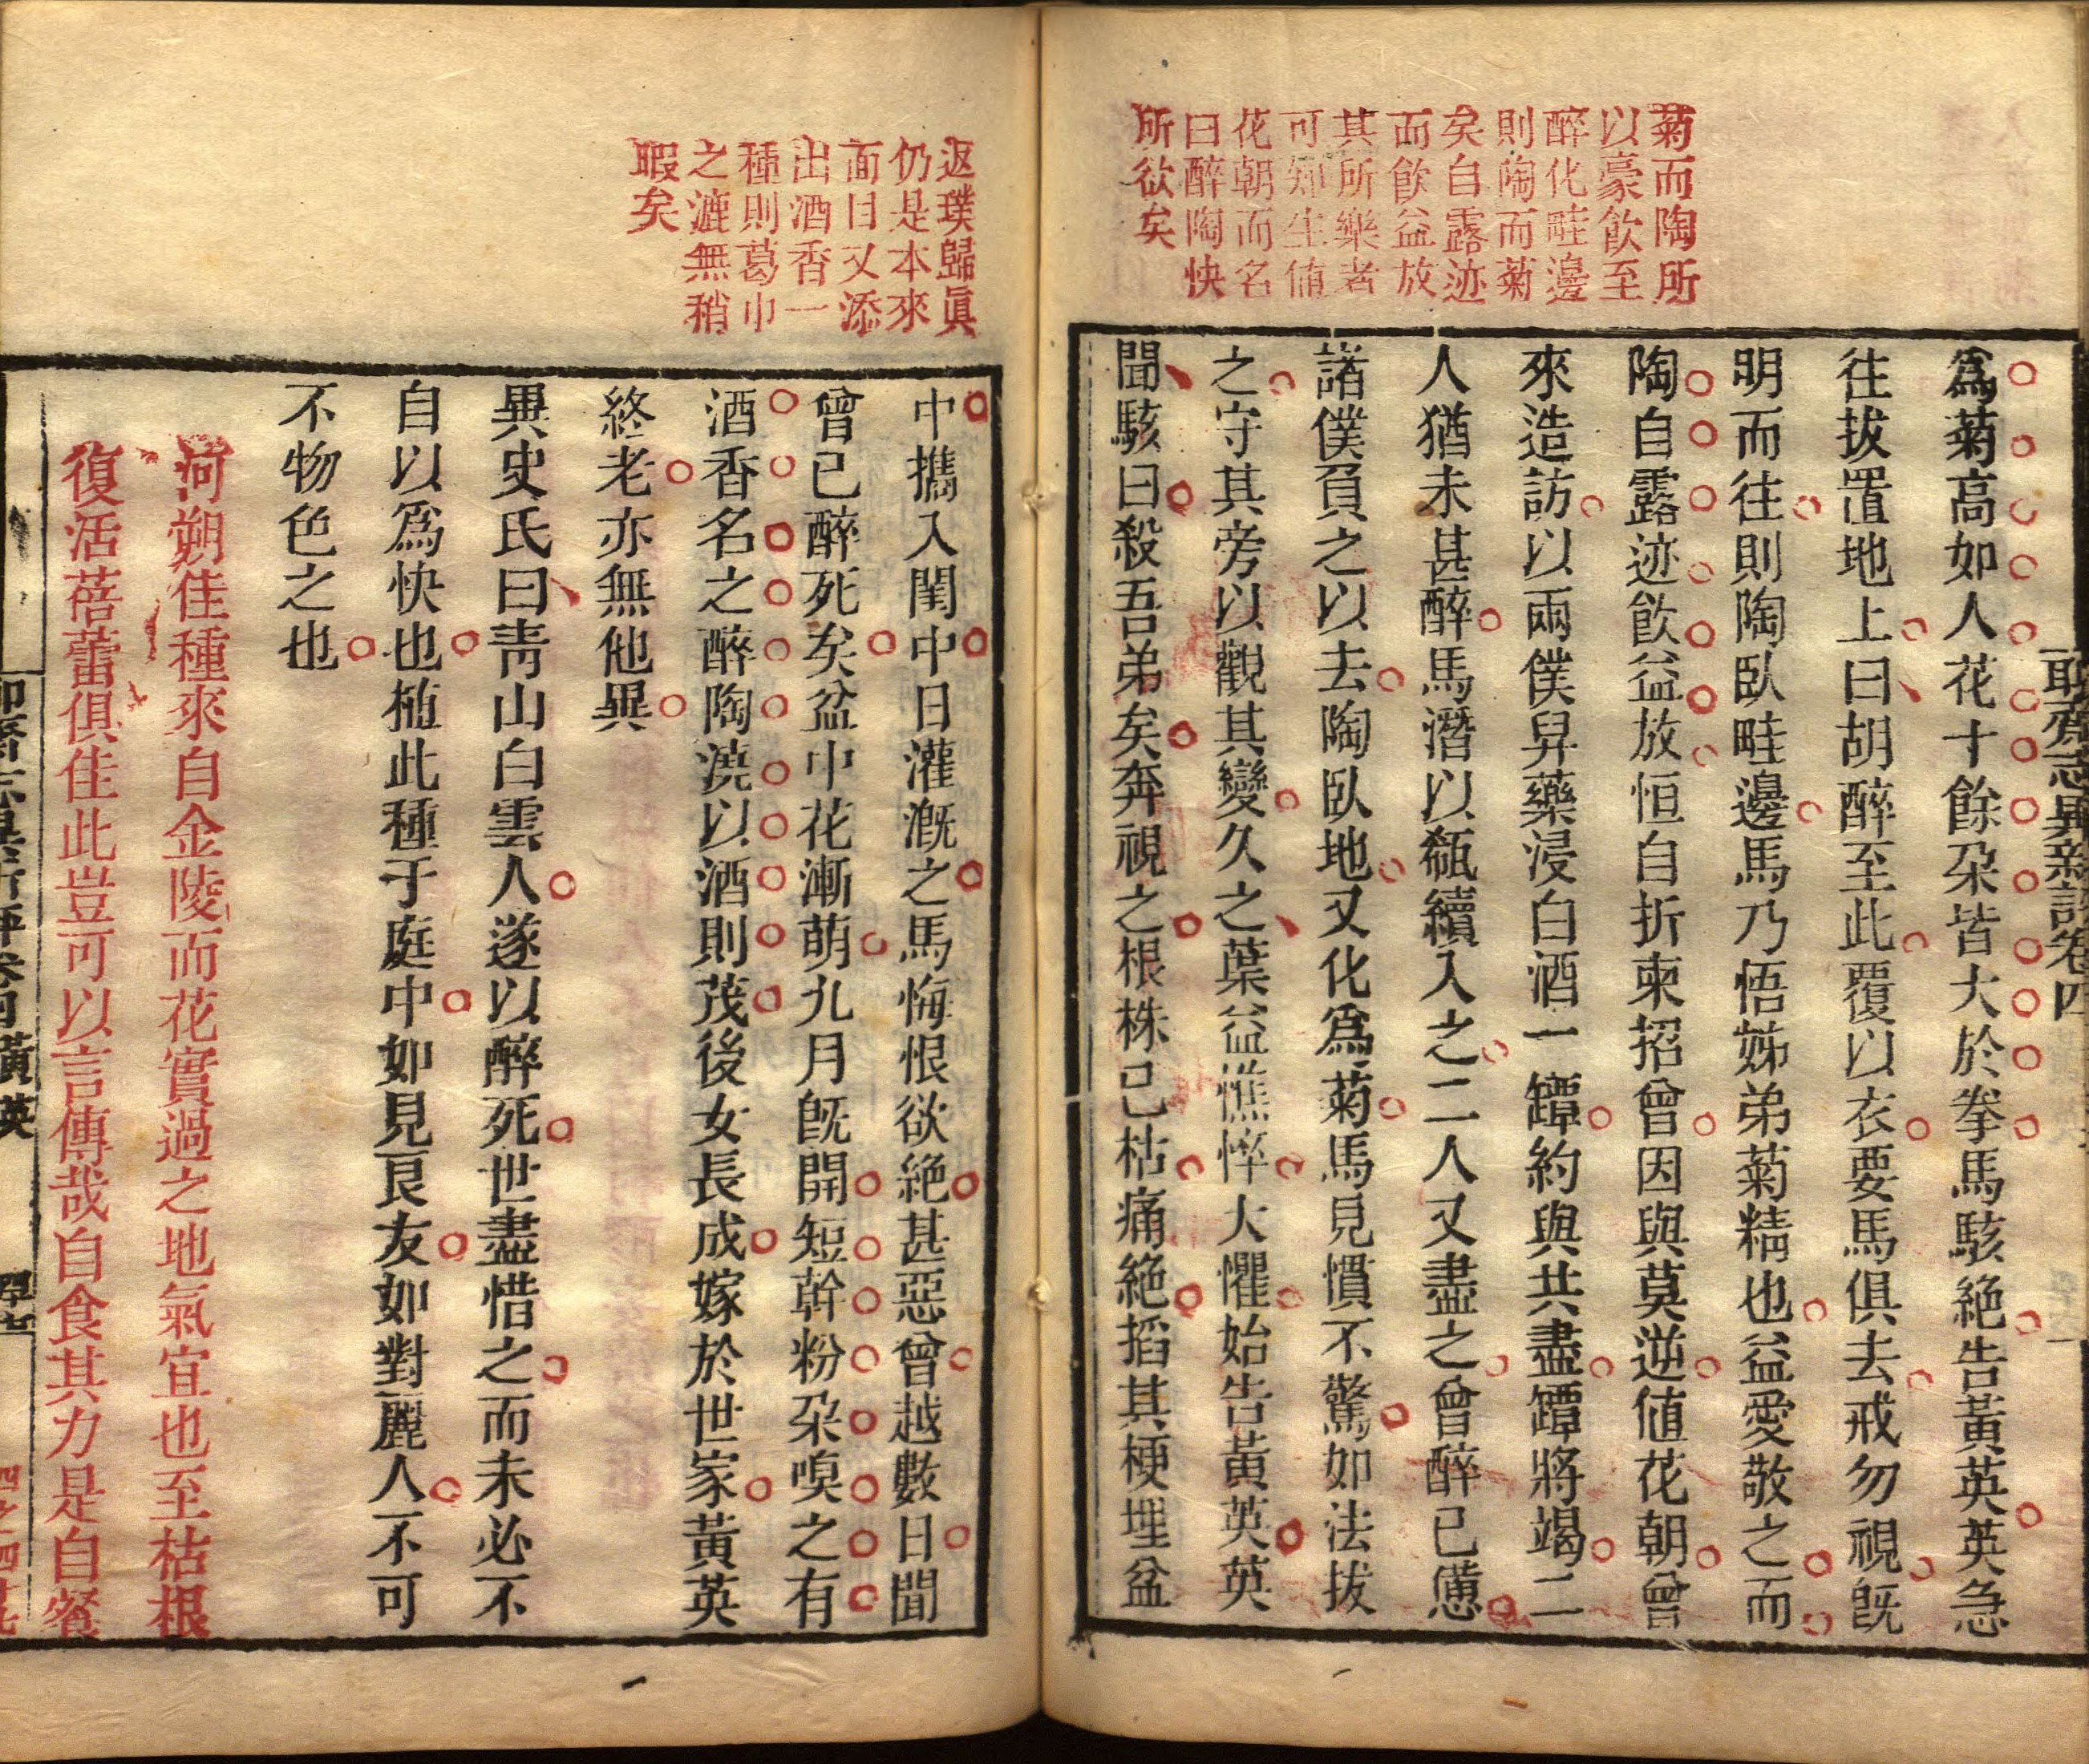 菊而陶所
以豪飲至
醉化畦邊
則陶而菊
矣自露迹
而飲益放
其所樂者
可知生值
花朝而名
曰醉陶快
所欲矣
聊齋志異新評卷四
爲菊高如人花十餘朶皆大於拳馬駭絕告黃英英急
往拔置地上曰胡醉至此覆以衣要馬俱去戒勿視旣
明而往則陶臥畦邊馬乃悟姊弟菊精也益愛敬之而
陶自露迹飲益放恒自折柬招曾因與莫逆値花朝曾
來造訪以兩僕舁藥浸白酒一罈約與共盡罈將竭二
人猶未甚醉馬潛以瓻續入之二人又盡之曾醉已憊
諸僕負之以去陶臥地又化爲菊馬見慣不驚如法拔
之守其旁以觀其變久之葉益憔悴大懼始告黃英英
聞駭曰殺吾弟矣奔視之根株已枯痛絕掐其梗埋盆
返璞歸眞
仍是本來
面目又添
出酒香一
種則葛巾
之漉無稍
暇矣
中攜入閨中日灌漑之馬悔恨欲絕甚惡曾越數日聞
曾已醉死矣盆中花漸萌九月旣開短幹粉朶嗅之有
酒香名之醉陶澆以酒則茂後女長成嫁於世家黃英
終老亦無他異
異史氏曰靑山白雲人遂以醉死世盡惜之而未必不
自以爲快也植此種于庭中如見良友如對麗人不可
不物色之也
河朔佳種來自金陵而花實過之地氣宜也至枯根
復活蓓蕾俱佳此豈可以言傳哉自食其力是自餐
聊齋志異新評卷四黃英